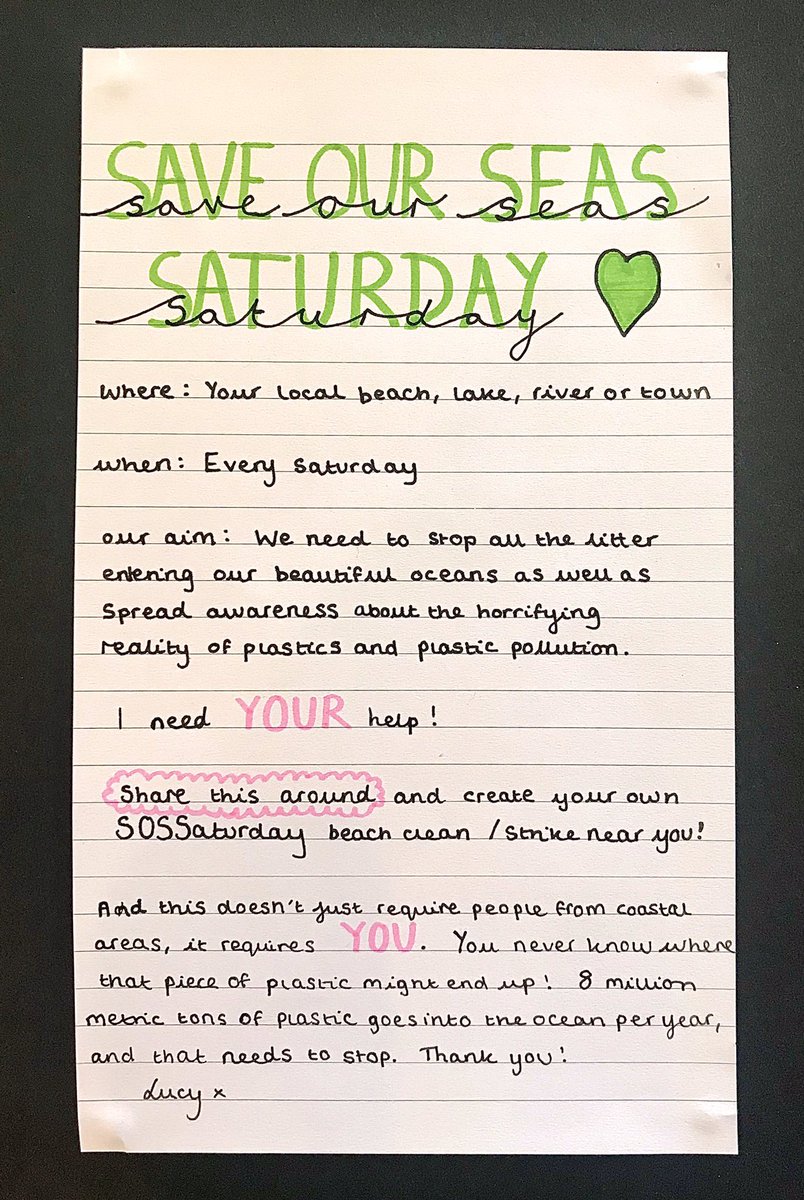 SAVE OUR SEAS
save our seas
SATURDAY
saturday
where: Your local beach, lake, river or town
when: Every Saturday
our aim: We need to stop all the litter
entering our beautiful oceans as well as
spread awareness about the horrifying
reality of plastics and plastic pollution.
I need YOUR help!
Share this around and create your own
SOSSaturday beach clean / strike near you!
And this doesn't just require people from coastal
areas, it requires YOU. You never know where
that piece of plastic might end up! 8 million
metric tons of plastic goes into the ocean per year,
and that needs to stop. Thank you!
Lucy x